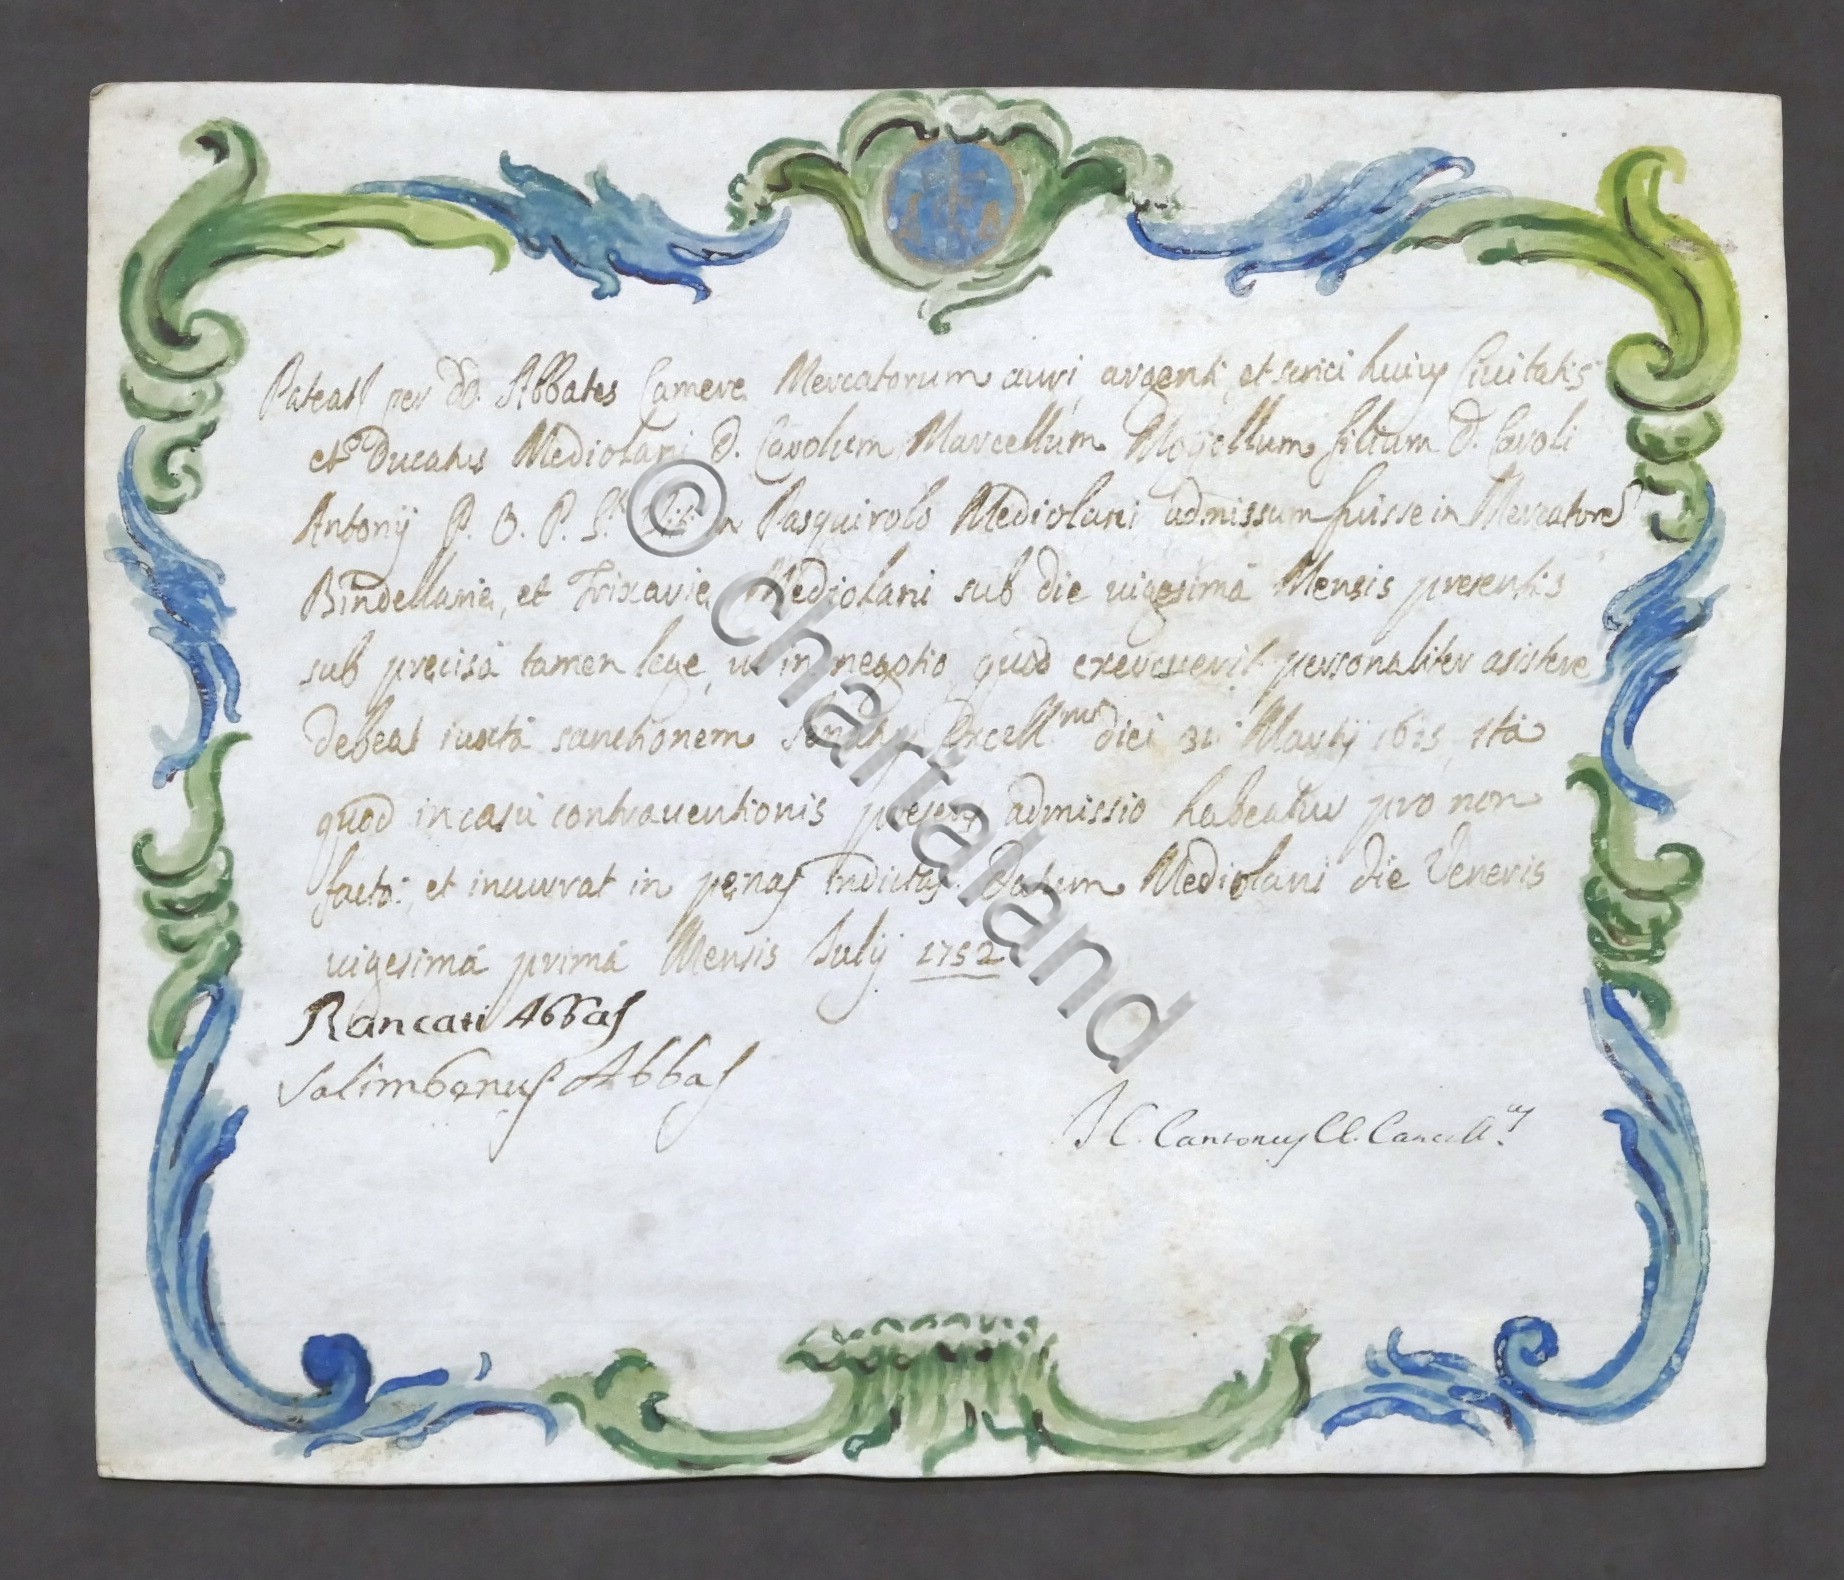 Pateat per DD. Abbates Camere Mercatorum auri, argenti, et serici huius Civitatis
et Ducatus Mediolani D. Carolum Marcellum filium D. Caroli
Antonij P. O. P. S. in Pasquirolo Mediolani admissum fuisse in Mercatore
Bindellarie, et Trixarie Mediolani sub die uigesimâ Mensis presentis
sub precisâ tamen lege, ut in negotio, quod exercuerit personaliter asistere
debeat iuxtâ sanctionem Senatus Excell.mi diei 31 Martij Ità
quod in casù contrauentionis presens admissio habeatur pro non
factâ, et incurrat in penas indictas. Datum Mediolani die Veneris
uigesimâ primâ Mensis Julij 1752
Rancati Abbas
Salimbenus Abbas
J C. Cantonus Cancell.us
© chartaland